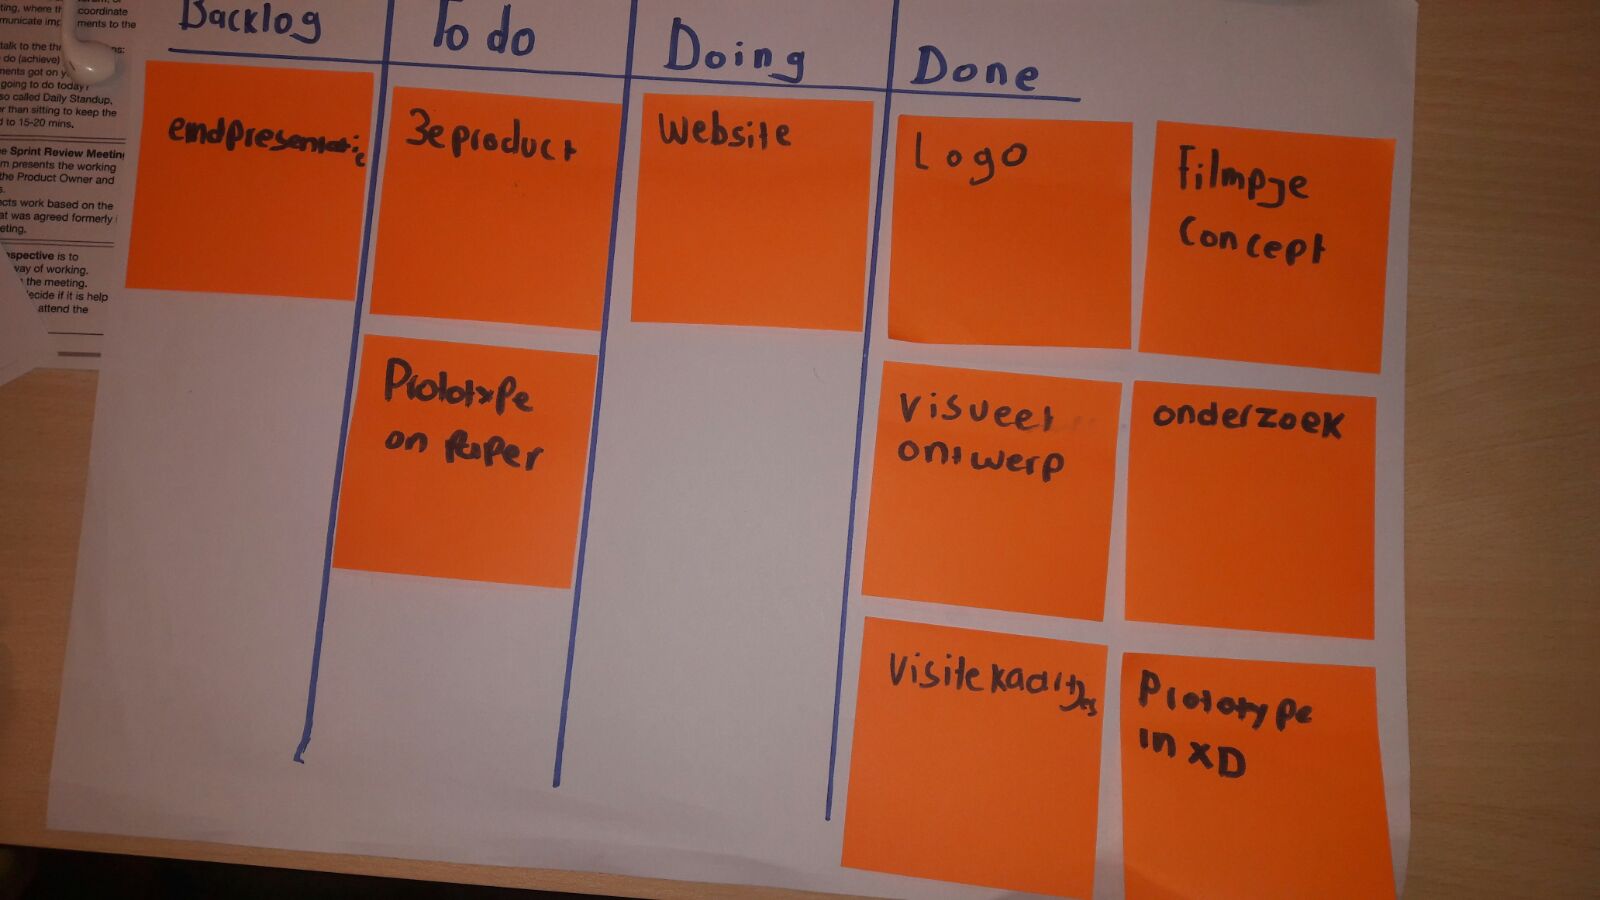 ting, where th
coordinate
municate imp
ments to the
talk to the thr
ns:
do (achieve)
ments got on y
going to do today?
so called Daily Standup,
r than sitting to keep the
d to 15-20 mins.
e Sprint Review Meetin
m presents the working
the Product Owner and
s.
cts work based on the
at was agreed formerly
eting.
ospective is to
way of working.
the meeting.
ecide if it is help
attend the
Backlog
To do
Doing
Done
eindpresentatie
3e product
Prototype
on paper
Website
Logo
Filmpje
concept
visueel
ontwerp
onderzoek
Visitekaartjes
Prototype
in XD